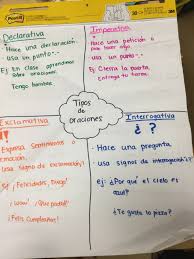 Post-it
Declarativa
• Hace una declaración.
• usa un punto → .
Ej: En clase aprendimos
sobre oraciones.
Tengo hambre.
Imperativa
• Hace una petición o
• usa un punto → .
Ej: Cierra la puerta.
Entrega tu tarea.
Tipos
de
oraciones
Exclamativa
¡ !
• Expresa sentimientos o
emoción.
• usa signo de exclamación.
Ej: ¡Felicidades, Diego!
¡Wow! ¡Que padre!
¡Feliz Cumpleaños!
Interrogativa
¿ ?
• Hace una pregunta
• usa signos de interrogación
Ej: ¿Por qué el cielo es
azul?
¿Te gusta la pizza?